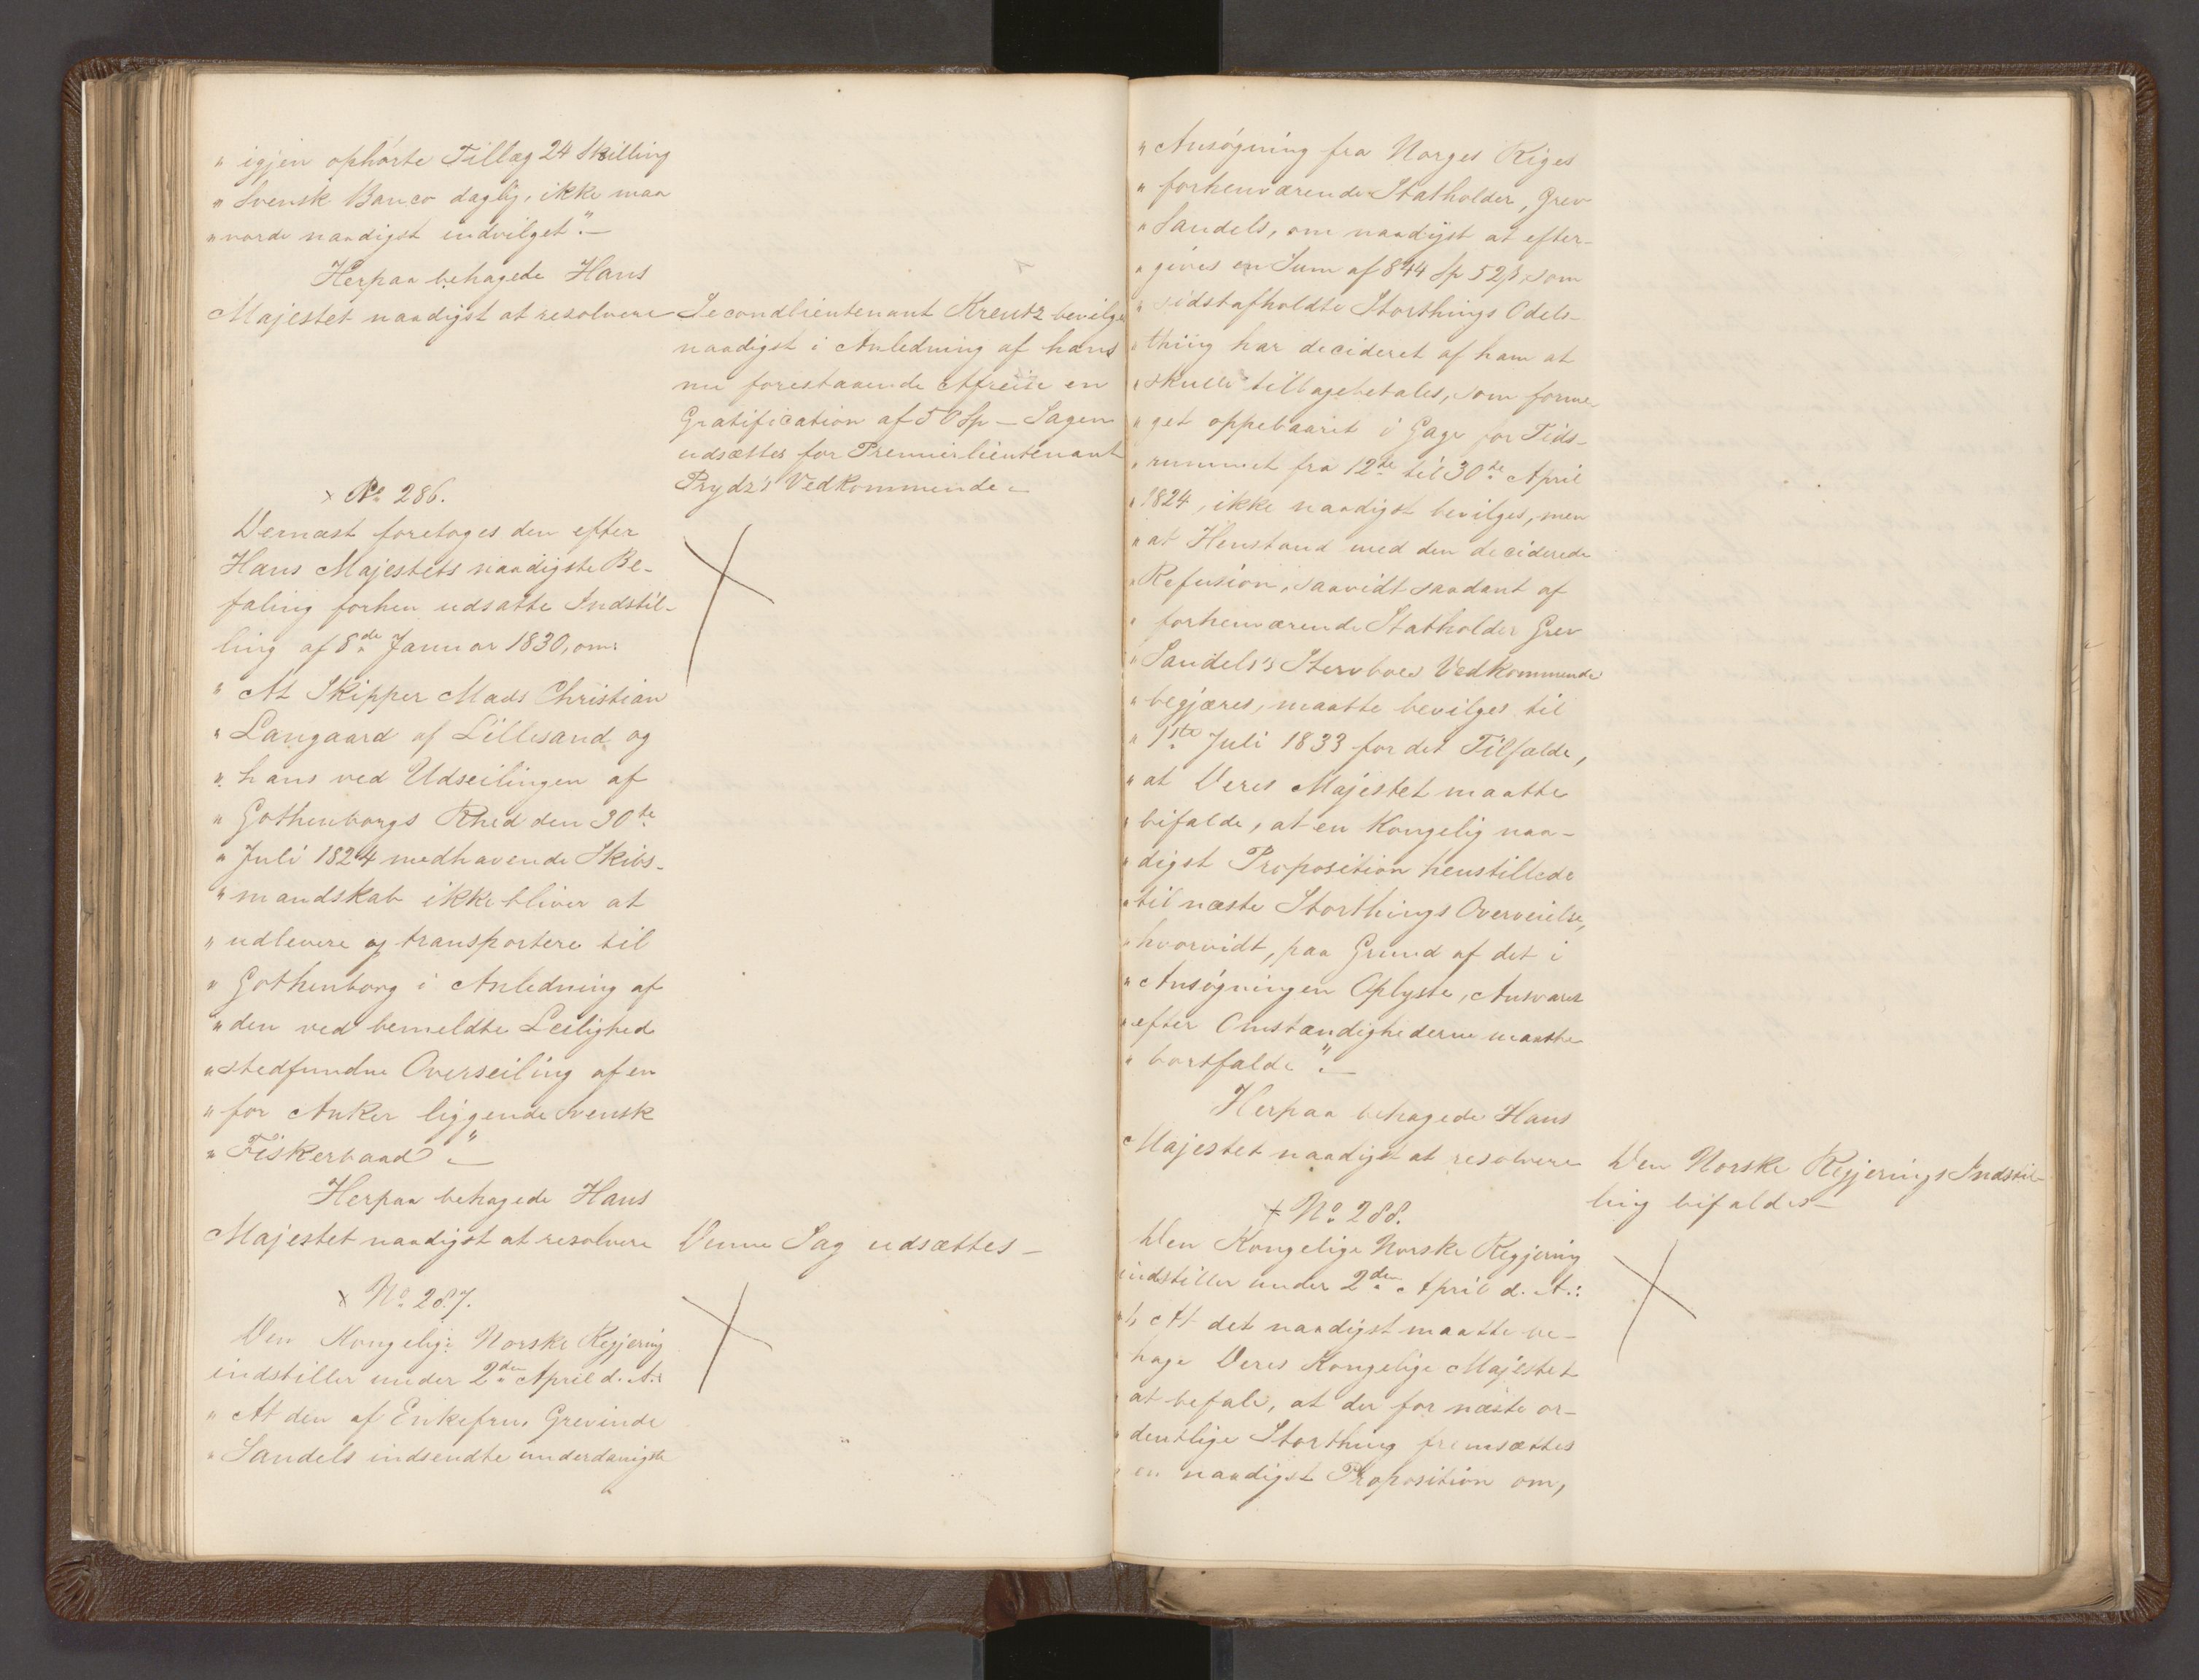 " igjen ophørte Tillæg 24 Skilling
" Svensk Banco daglig, ikke maa
" vorde naadigst indvilget". —
Herpaa behagede Hans
Majestet naadigst at resolvere
Secondlieutenant Kreutz bevilges
naadigst i Anledning af hans
nu forestaaende Afreise en
Gratification af 50 Sp — Sagen
udsættes for Premierlieutenant
Prydz's Vedkommende. —
x No 286.
Dernæst foretoges den efter
Hans Majestets naadigste Be-
faling forhen udsatte Indstil-
ling af 8de Januar 1830, om:
" At Skipper Mads Christian
" Langaard af Lillesand og
" hans ved Udseilingen af
" Gothenborgs Rhed den 30te
" Juli 1824 medhavende Skibs-
" mandskab ikke bliver at
" udlevere og transportere til
" Gothenborg i Anledning af
" den ved bemeldte Leilighed
" stedfundne Overseiling af en
" for Anker liggende svensk
" Fiskerbaad". —
Herpaa behagede Hans
Majestet naadigst at resolvere
Denne Sag udsættes —
x No 287.
Den Kongelige Norske Regjering
indstiller under 2den April d. A.:
" At den af Enkefru, Grevinde
" Sandels indsendte underdanigste
" Ansøgning fra Norges Riges
" forhenværende Statholder, Grev
" Sandels, om naadigst at efter-
" gives en Sum af 844 Sp 52 ß, som
" sidstafholdte Storthings Odels-
" thing har decideret af ham at
" skulle tilbagebetales, som forme-
" get oppebaaret i Gage for Tids-
" rummet fra 12te til 30te April
" 1824, ikke naadigst bevilges, men
" at Henstand med den deciderede
" Refusion, saavidt saadant af
" forhenværende Statholder Grev
" Sandels's Stervboes Vedkommende
" begjæres, maatte bevilges til
" 1ste Juli 1833 for det Tilfælde,
" at Deres Majestet maatte
" bifalde, at en Kongelig naa-
" digst Proposition henstillede
" til næste Storthings Overveielse,
" hvorvidt, paa Grund af det i
" Ansøgningen Oplyste, Ansvaret
" efter Omstændighederne maatte
" bortfalde". —
Herpaa behagede Hans
Majestet naadigst at resolvere
Den Norske Regjerings Indstil-
ling bifaldes —
x No 288.
Den Kongelige Norske Regjering
indstiller under 2den April d. A.:
" 1, At det naadigst maatte be-
" hage Deres Kongelige Majestet
" at befale, at der for næste or-
" dentlige Storthing fremsættes
" en naadigst Proposition om,